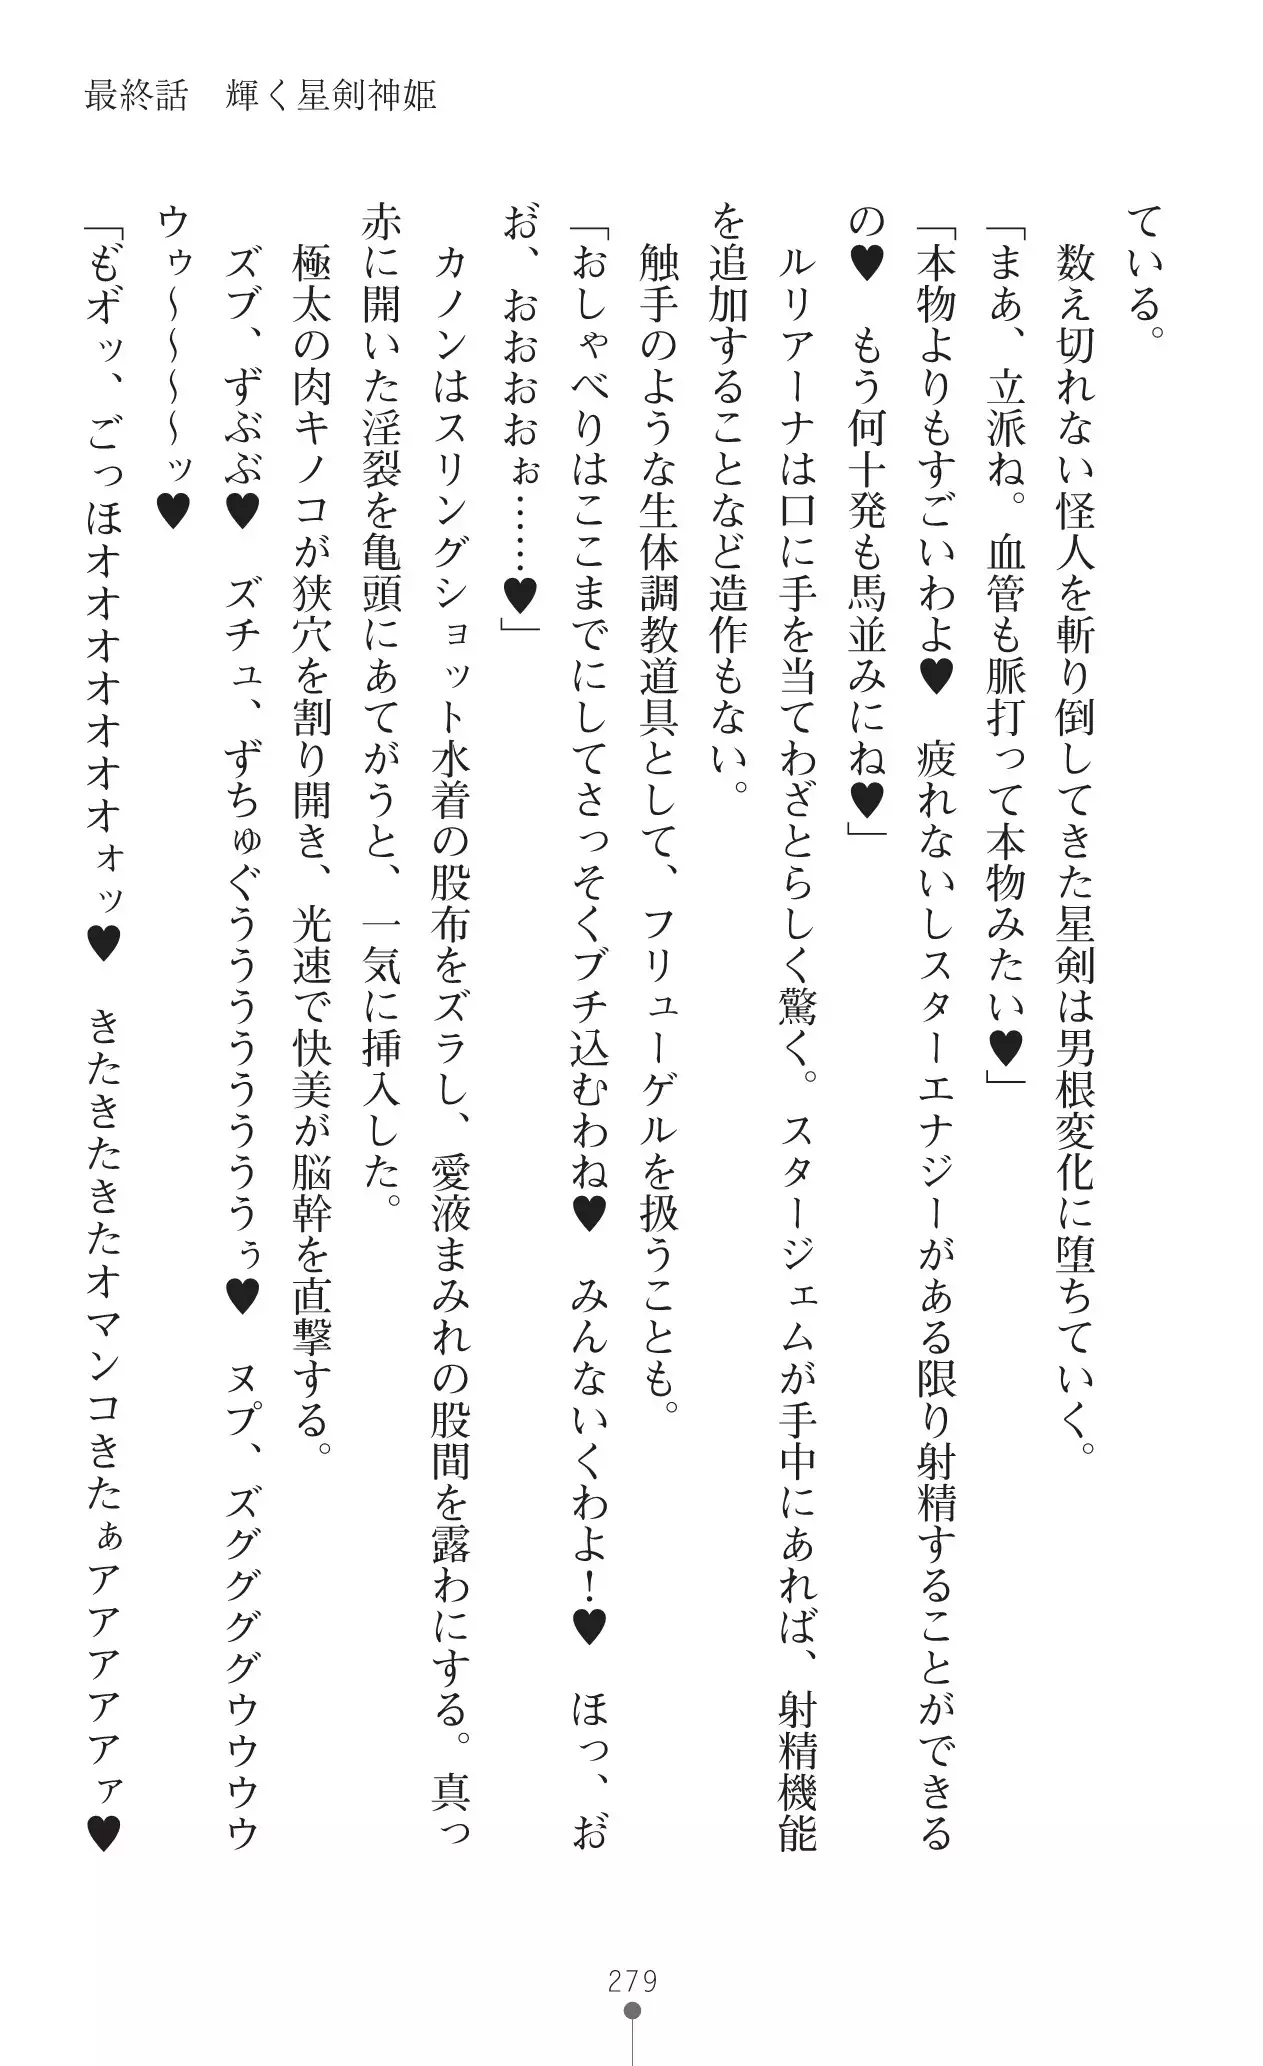 最終話　輝く星剣神姫
ている。
　数え切れない怪人を斬り倒してきた星剣は男根変化に堕ちていく。
「まあ、立派ね。血管も脈打って本物みたい♥」
「本物よりもすごいわよ♥　疲れないしスターエナジーがある限り射精することができる
の♥　もう何十発も馬並みにね♥」
　ルリアーナは口に手を当てわざとらしく驚く。スタージェムが手中にあれば、射精機能
を追加することなど造作もない。
　触手のような生体調教道具として、フリューゲルを扱うことも。
「おしゃべりはここまでにしてさっそくブチ込むわね♥　みんないくわよ！♥　ほっ、お゛
お゛、おおおおぉ……♥」
　カノンはスリングショット水着の股布をズラし、愛液まみれの股間を露わにする。真っ
赤に開いた淫裂を亀頭にあてがうと、一気に挿入した。
　極太の肉キノコが狭穴を割り開き、光速で快美が脳幹を直撃する。
　ズブ、ずぶぶ♥　ズチュ、ずちゅぐううううううううぅ♥　ヌプ、ズググググウウウウ
ウゥ～～～～ッ♥
「も゛オ゛ッ、ごっほオオオオオオオォッ♥　きたきたきたオマンコきたぁアアアアアァ♥
279